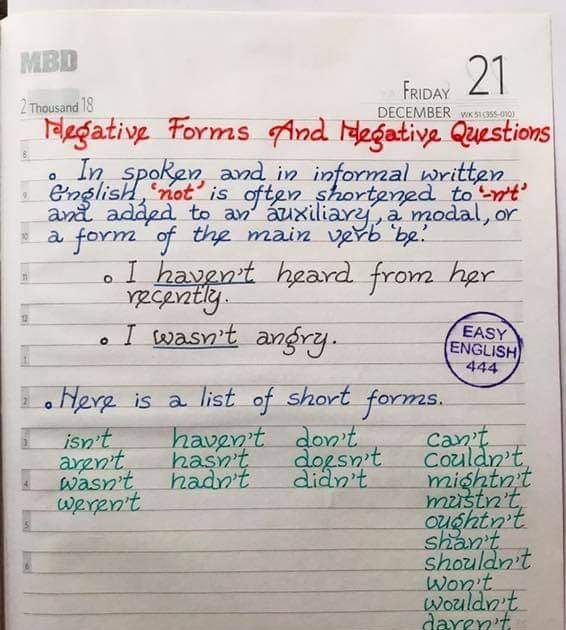 MBD
2 Thousand 18
FRIDAY 21
DECEMBER WK 51 (355-010)
Negative Forms And Negative Questions
8
• In spoken and in informal written
9 English, 'not' is often shortened to '-n't'
and added to an auxiliary, a modal, or
10 a form of the main verb 'be'.
11 • I haven't heard from her
recently.
12
• I wasn't angry.
1
EASY
ENGLISH
444
2 • Here is a list of short forms.
3 isn't haven't don't can't
aren't hasn't doesn't couldn't
4 wasn't hadn't didn't mightn't
weren't mustn't
5 oughtn't
shan't
6 shouldn't
won't
wouldn't
daren't